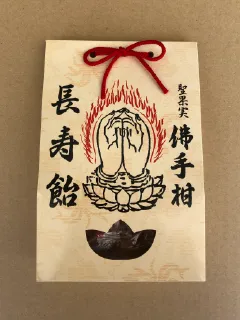 聖果実
佛手柑
長寿飴